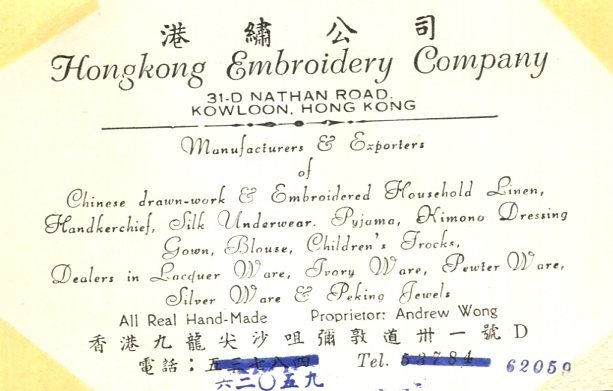 港繡公司
Hongkong Embroidery Company
31-D NATHAN ROAD.
KOWLOON, HONG KONG
Manufacturers & Exporters
of
Chinese drawn-work & Embroidered Household Linen,
Handkerchief, Silk Underwear. Pyjama, Kimono Dressing
Gown, Blouse, Children's Frocks,
Dealers in Lacquer Ware, Ivory Ware, Pewter Ware,
Silver Ware & Peking Jewels
All Real Hand-Made Proprietor: Andrew Wong
香港九龍尖沙咀彌敦道卅一號D
電話：五三七八四 Tel. 53784 62059
六二〇五九